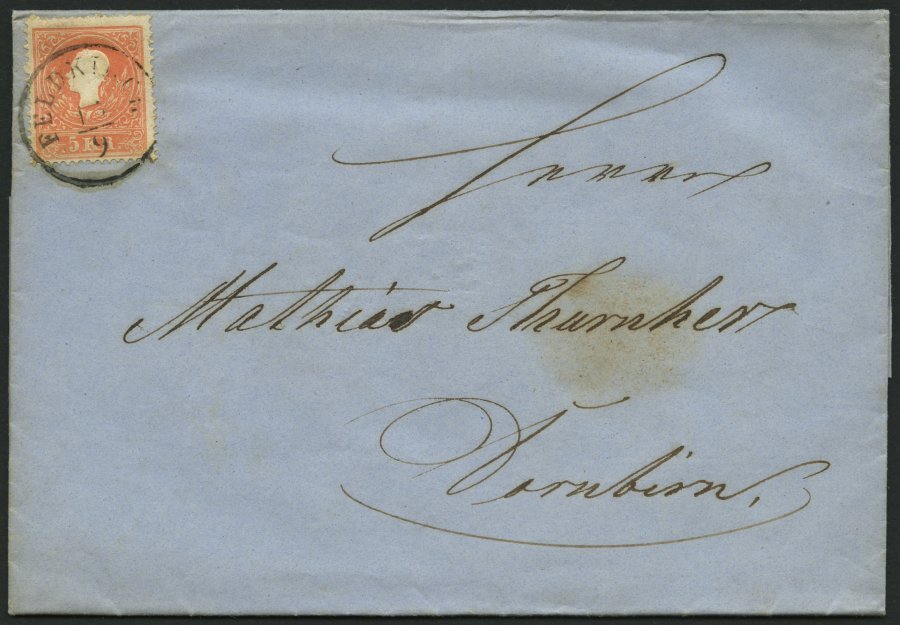 FELDKIRCH
9
5 KR.
Herrn
Mathias Thurnher
Dornbirn.